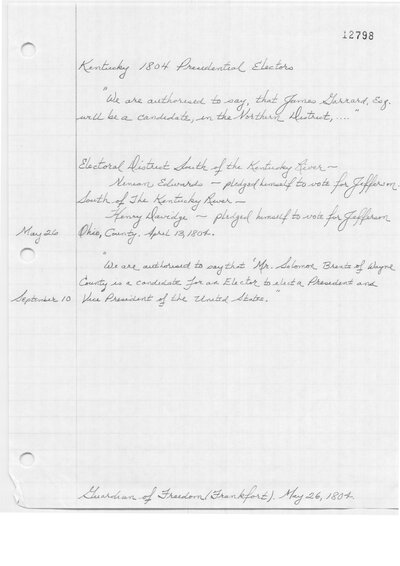 12798
Kentucky 1804 Presidential Electors
"We are authorised to say, that James Garrard, Esq.
will be a candidate, in the Northern District, ...."
Electoral District South of the Kentucky River —
Ninian Edwards — pledged himself to vote for Jefferson.
South of The Kentucky River —
Henry Davidge — pledged himself to vote for Jefferson
May 26 Ohio, County. April 13, 1804.
"We are authorised to say that Mr. Solomon Brents of Wayne
County is a candidate for an Elector to elect a President and
September 10 Vice President of the United States."
Guardian of Freedom (Frankfort). May 26, 1804.